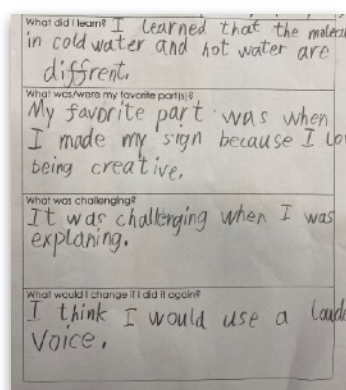 What did I learn? I learned that the molecu
in cold water and hot water are
diffrent.
What was/were my favorite part(s)?
My favorite part was when
I made my sign because I lov
being creative.
What was challenging?
It was challenging when I was
explaning.
What would I change if I did it again?
I think I would use a loude
Voice.